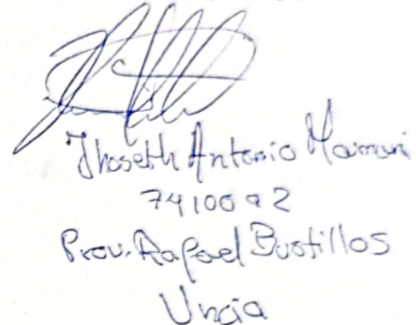 Jhoseth Antonio Mamani
7410092
Prov. Rafael Bustillos
Uncia